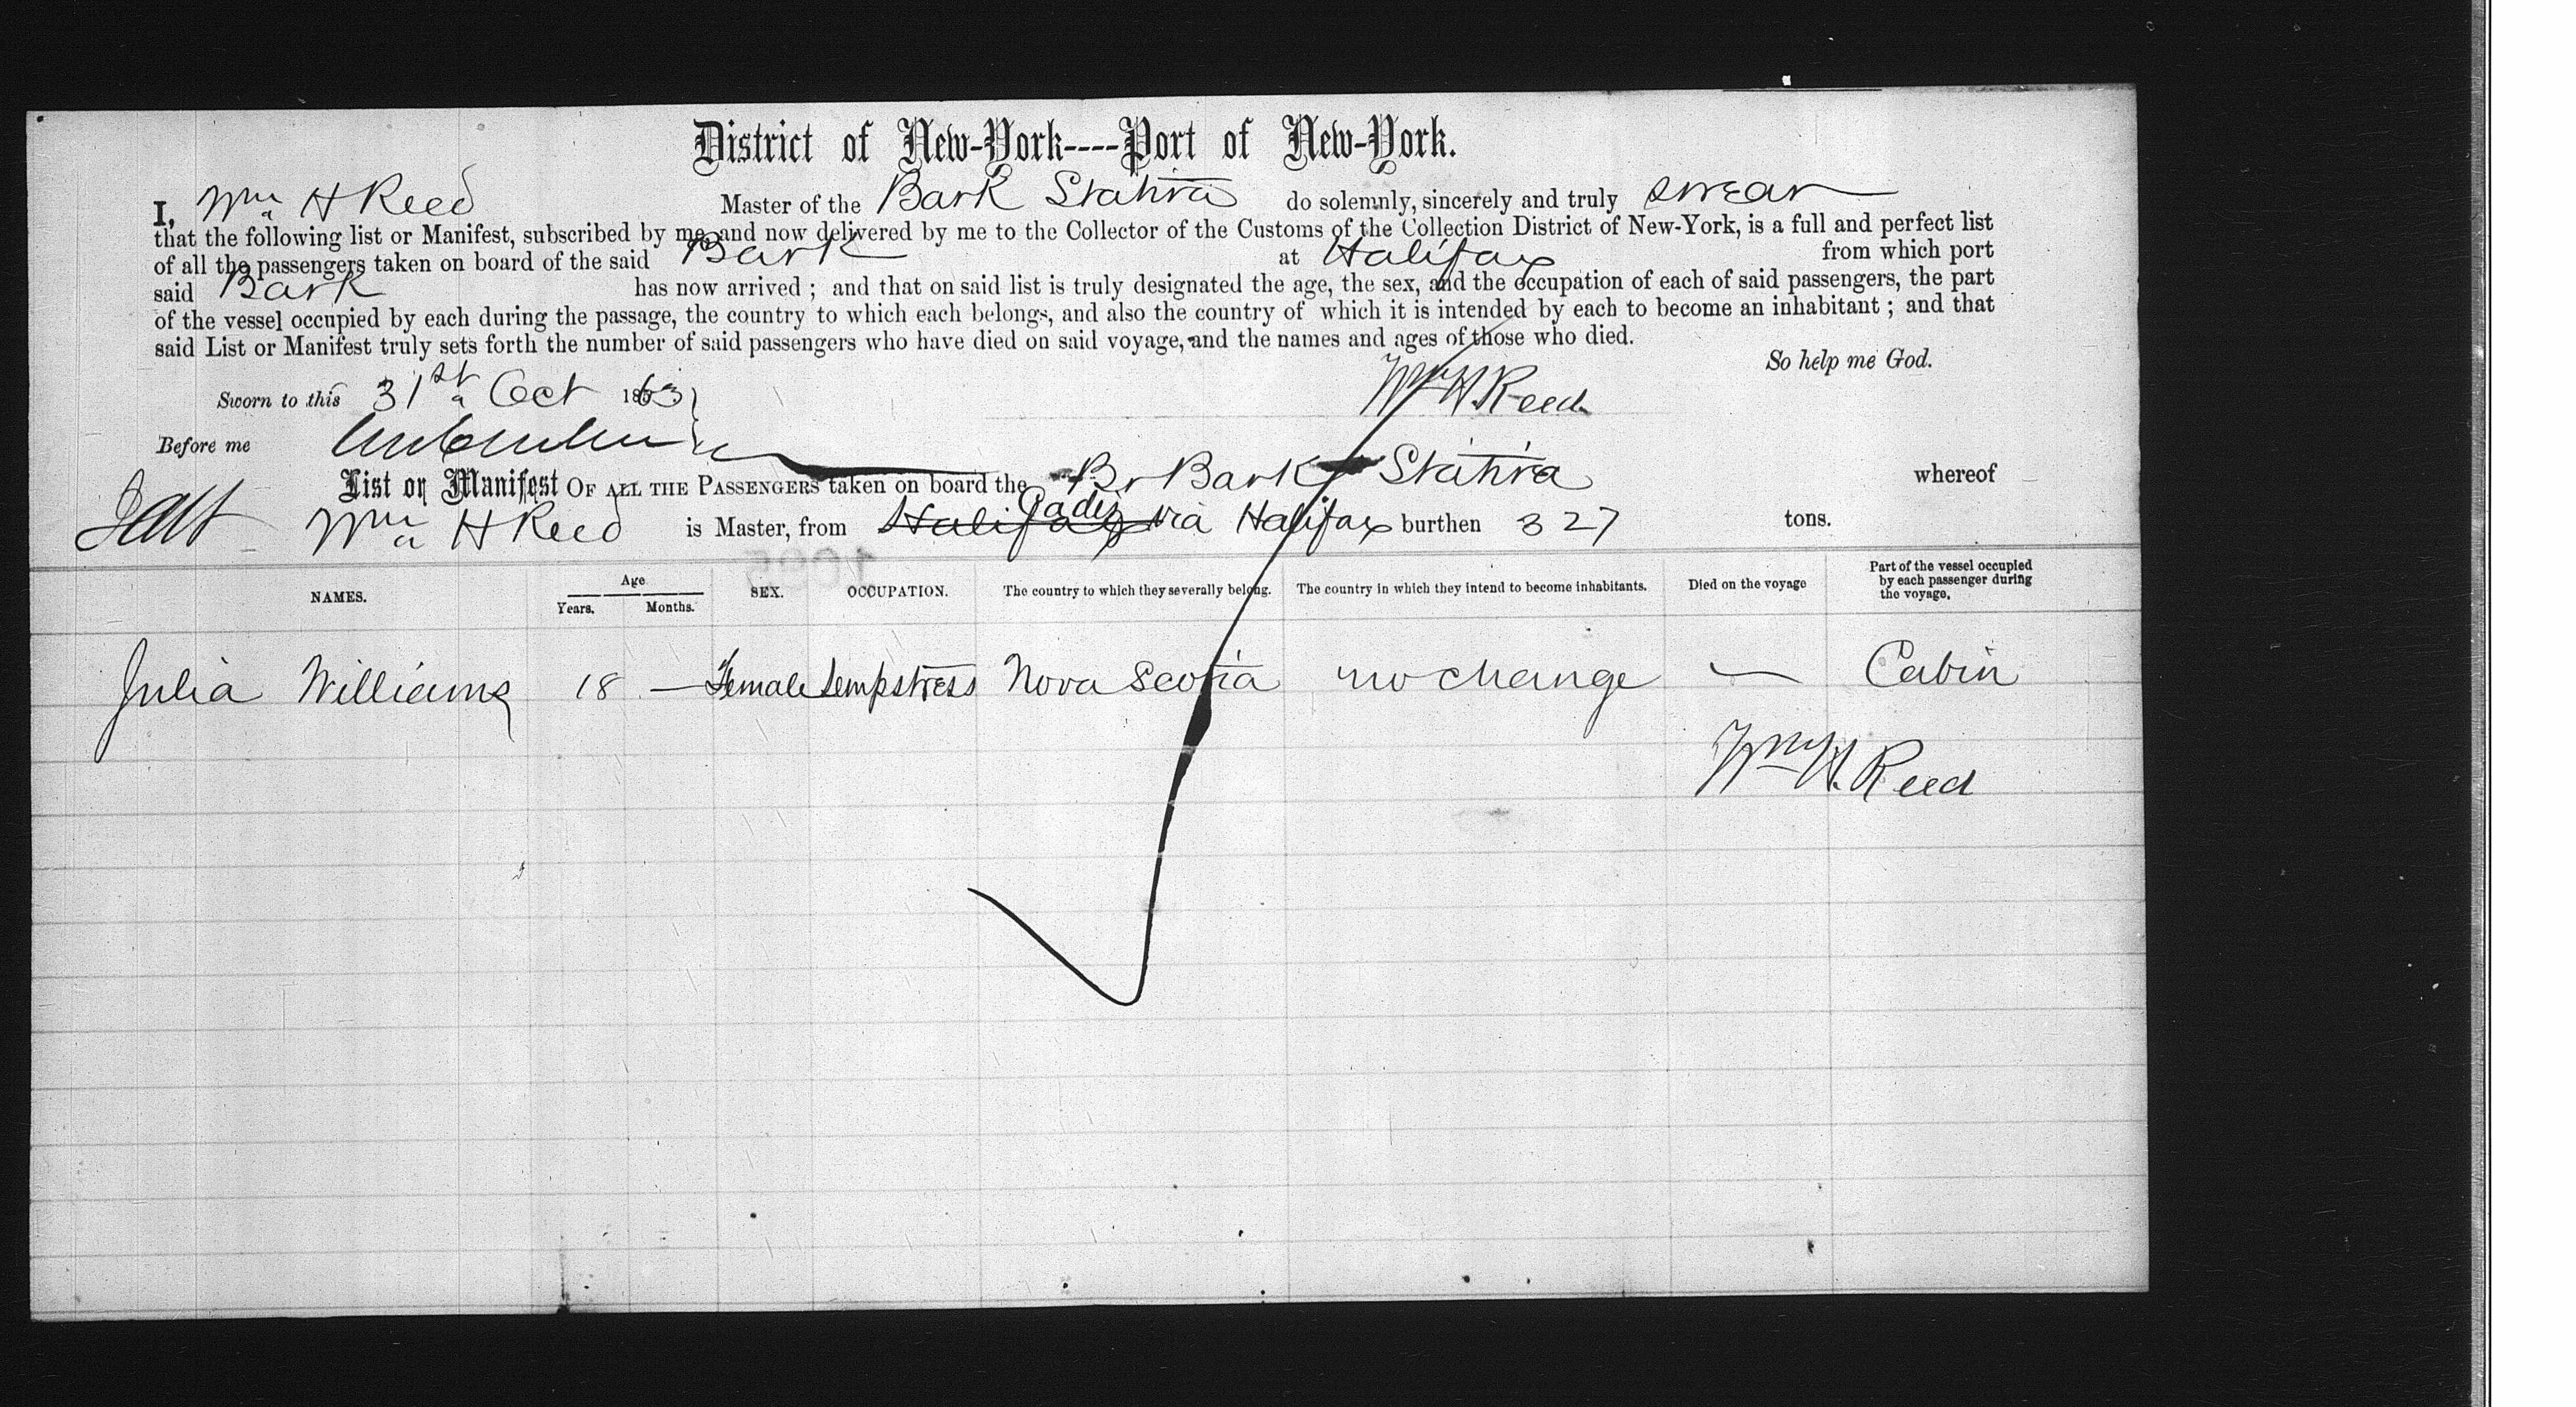 District of New-York----Port of New-York.
I, Wm H Reed Master of the Bark Statira do solemnly, sincerely and truly swear
that the following list or Manifest, subscribed by me and now delivered by me to the Collector of the Customs of the Collection District of New-York, is a full and perfect list
of all the passengers taken on board of the said Bark at Halifax from which port
said Bark has now arrived ; and that on said list is truly designated the age, the sex, and the occupation of each of said passengers, the part
of the vessel occupied by each during the passage, the country to which each belongs, and also the country of which it is intended by each to become an inhabitant ; and that
said List or Manifest truly sets forth the number of said passengers who have died on said voyage, and the names and ages of those who died.
So help me God.
Sworn to this 31st Oct 1863
Wm H. Reed
Before me
List or Manifest OF ALL THE PASSENGERS taken on board the Br Bark Statira whereof
Wm H Reed is Master, from Halifax Cadiz via Halifax burthen 327 tons.
NAMES. Age Years. Months. SEX. OCCUPATION. The country to which they severally belong. The country in which they intend to become inhabitants. Died on the voyage Part of the vessel occupied by each passenger during the voyage.
Julia Williams 18 — Female Sempstress Nova Scotia no change — Cabin
Wm H. Reed